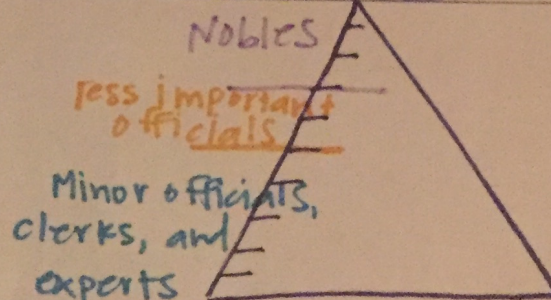 Nobles
less important
officials
Minor officials,
clerks, and
experts